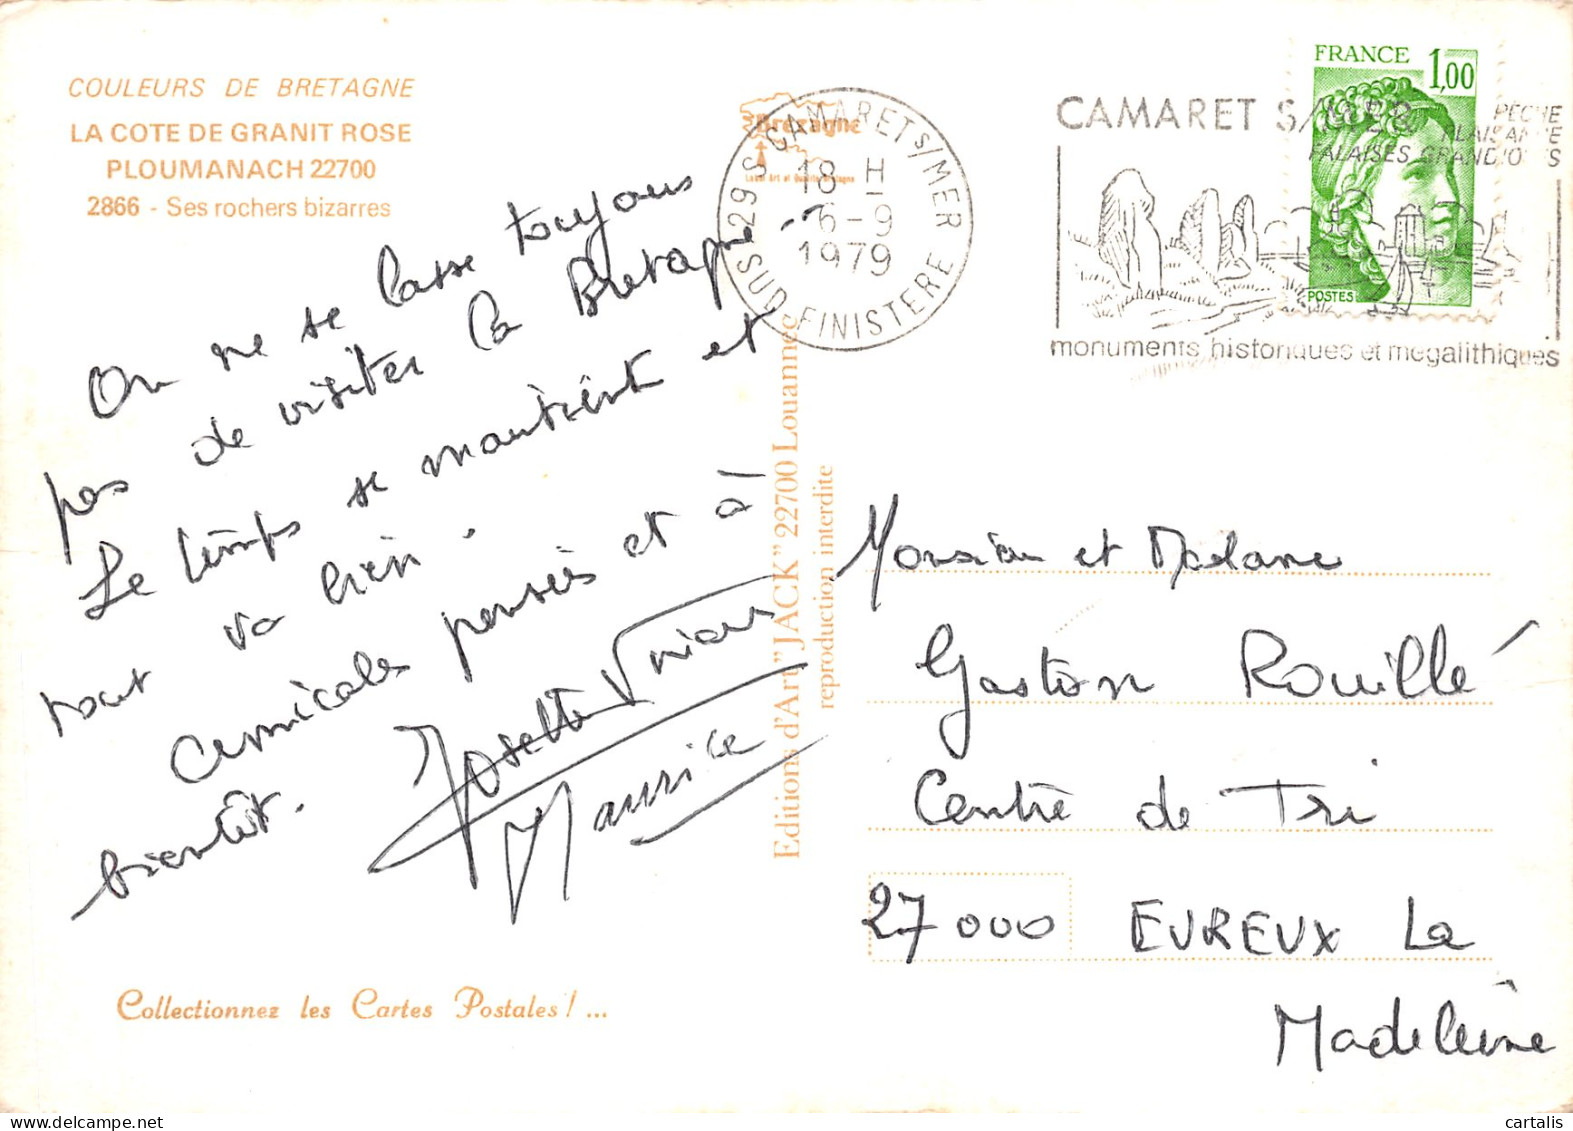 COULEURS DE BRETAGNE
LA COTE DE GRANIT ROSE
PLOUMANACH 22700
2866 - Ses rochers bizarres
On ne se lasse toujours
pas de visiter la Bretagne...
Le temps se maintient et
tout va bien.
Amicales pensées et à
bientôt.
Josette
Maurice
Collectionnez les Cartes Postales ! ...
Bretagne
Label Art et Qualité Bretagne
29 S CAMARET S/MER
18 H
6-9
1979
SUD-FINISTERE
Editions d'Art "JACK" 22700 Louannec
reproduction interdite
CAMARET S/MER
PECHE
PLAISANCE
FALAISES GRANDIOSES
monuments historiques et mégalithiques
FRANCE 1,00
POSTES
Monsieur et Madame
Gaston Rouillé
Centre de Tri
27000 EVREUX La
Madeleine
cartalis